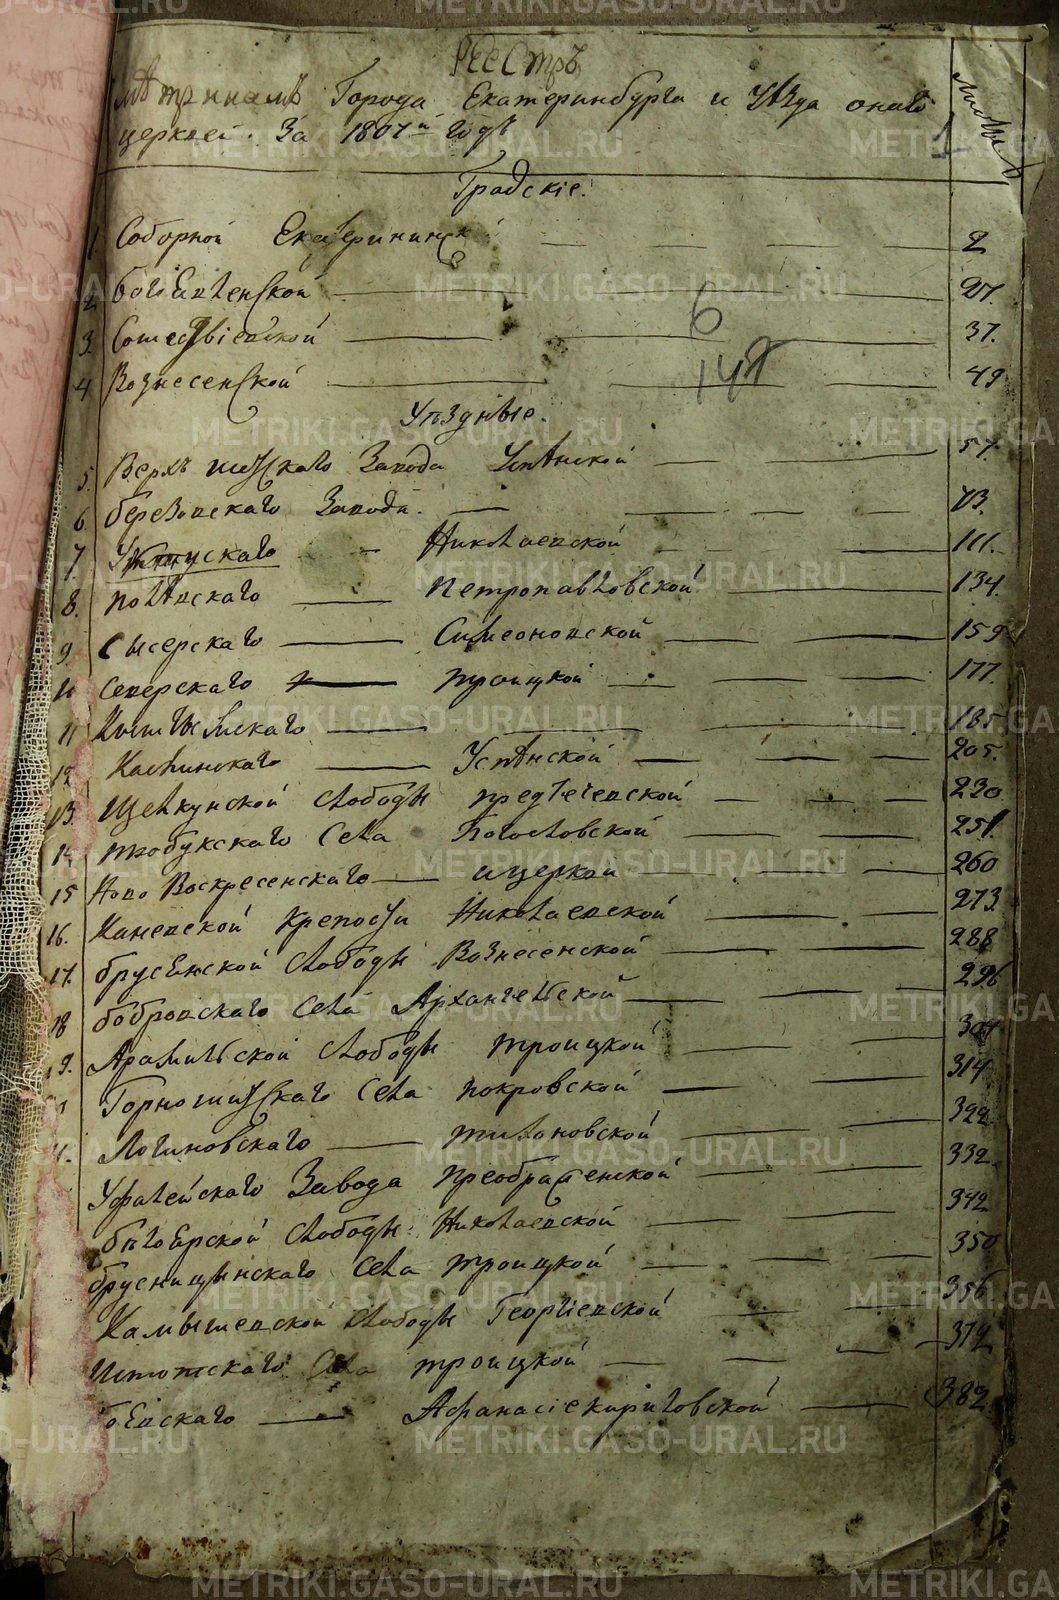 Реестръ
Метрикамъ Города Екатеринбурга и Уѣзда онаго
церквей. За 1807й годъ
Листы
Градскіе.
1 Соборной Екатерининск 2
2 богоявленской 27.
3. Сошествіевской 37.
4 Вознесенской 49
6
147
Уѣздные.
5. Верхъ исецкаго Завода Успенской 57.
6. березовскаго Завода. 73.
7. Уктусскаго Николаевской 111.
8. полевскаго петропавловской 134.
9. сысерскаго Симеоновской 159
10 северскаго троицкой 177.
11 Кыштымскаго 185
12 Каслинскаго Успенской 205.
13. Щелкунской слободы предтечевской 220
14 тюбукскаго Села Богословской 251.
15 Ново Воскресенскаго ицеркви 260
16. Каневской крепости Николаевской 273
17. брусянской слободы Вознесенской 288
18 бобровскаго Села Архангельской 296
19. Арамильской слободы троицкой
Горнощитскаго Села покровской 314
Логиновскаго тихоновской 322.
Уфалейскаго Завода преображенской 332.
бѣлоярской слободы Николаевской 342
брусницынскаго Села троицкой 350
Камышевской слободы Георгіевской 356
Истокскаго Села троицкой 372
боевскаго Афанасіекириловской 382
METRIKI.GASO-URAL.RU